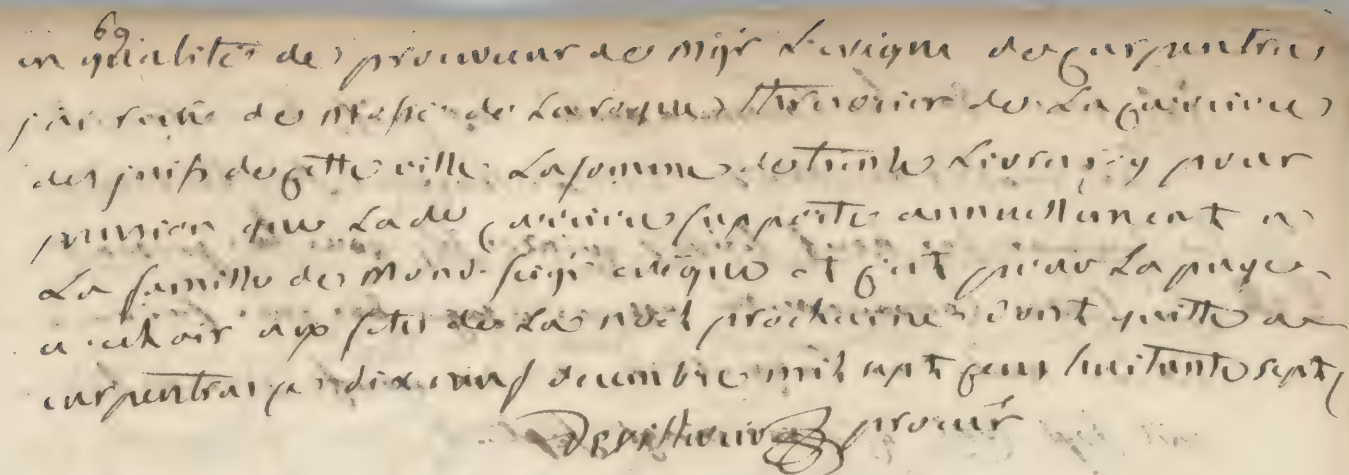 69
en qualité de procureur de Mgr L'evique de Carpentras
j'ai reçu de de Laroque Thresorier de La Carriere
des juifs de cette ville La somme de trente Livres pour
pension que Lade Carriere supporte annuellement a
La famille de Mond. seigr evique et c'est pour La paye
a echoir aux fetes de La noel prochaine dont quitte a
carpentras ce dix neuf decembre mil sept cens huitante sept
procur